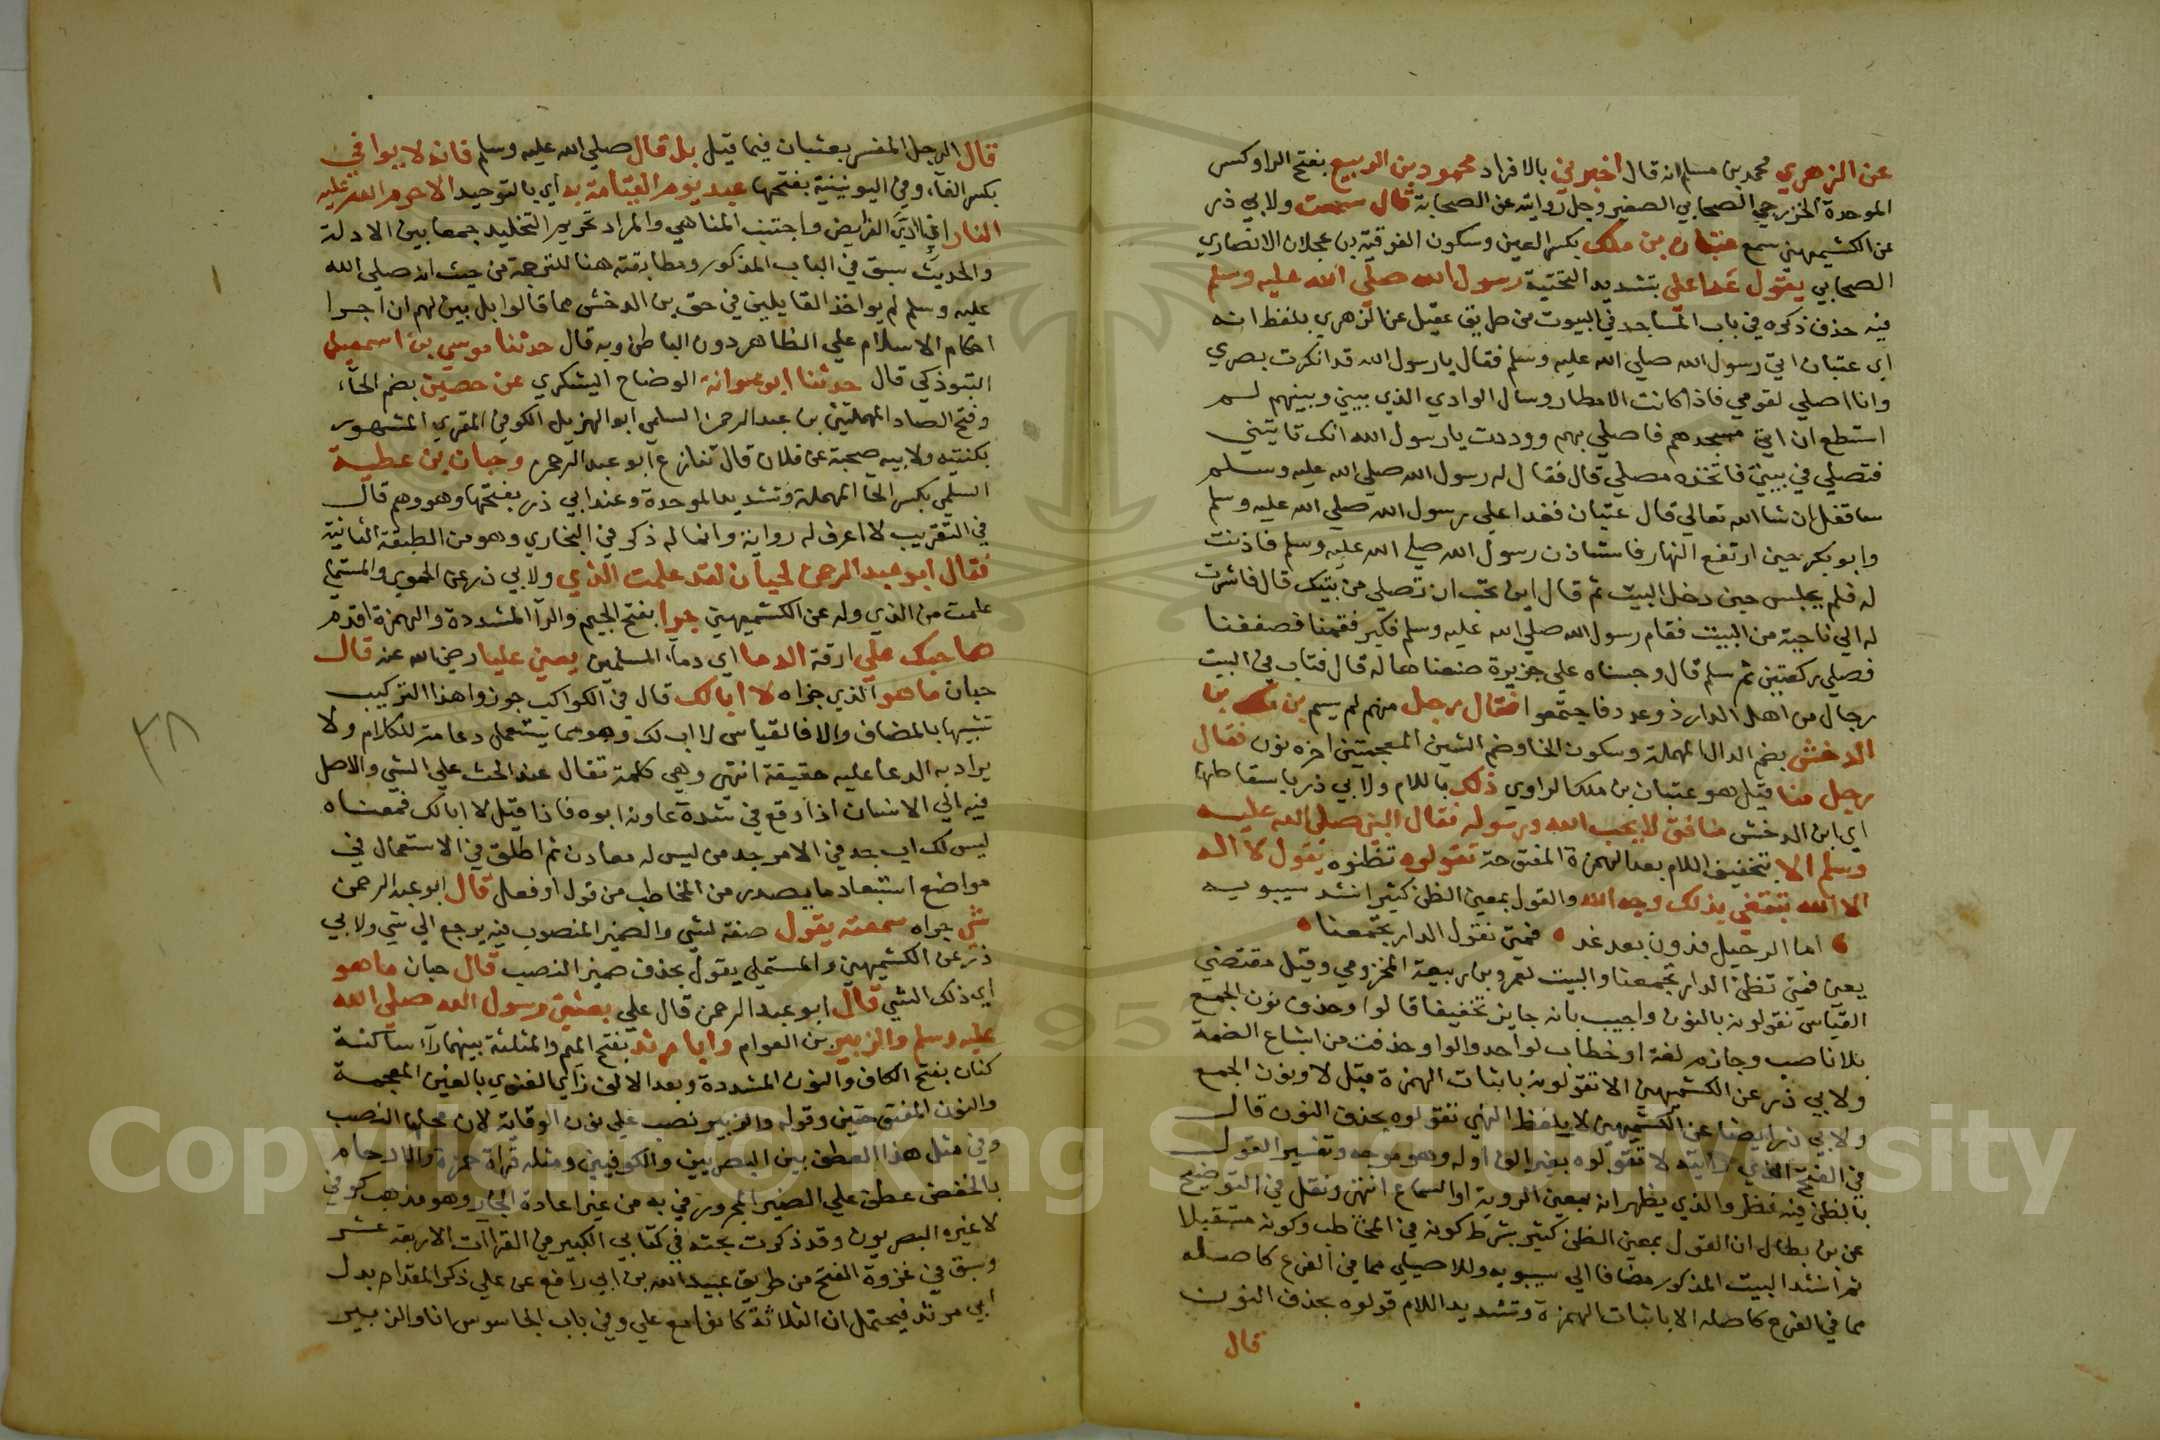 عن الزهري محمد بن مسلم انه قال اخبرني بالافراد محمود بن الربيع بفتح الرا وكسر
الموحدة الخزرجي الصحابي الصغير وجل روايته عن الصحابة قال سمعت ولابي ذر
عن الكشميهني سمع عتبان بن ملك بكسر العين وسكون الفوقية بن عجلان الانصاري
الصحابي يقول غدا علي بتشديد التحتية رسول الله صلي الله عليه وسلم
فيه حذف ذكره في باب المساجد في البيوت من طريق عقيل عن الزهري بلفظ انه
اي عتبان اتي رسول الله صلي الله عليه وسلم فقال يا رسول الله قد انكرت بصري
وانا اصلي لقومي فاذا كانت الامطار وسال الوادي الذي بيني وبينهم لم
استطع ان اتي مسجدهم فاصلي بهم ووددت يا رسول الله انك تاتيني
فتصلي في بيتي فاتخذه مصلي قال فقال له رسول الله صلي الله عليه وسلم
سافعل ان شا الله تعالي قال عتبان فغدا علي رسول الله صلي الله عليه وسلم
وابو بكر حين ارتفع النهار فاستاذن رسول الله صلي الله عليه وسلم فاذنت
له فلم يجلس حين دخل البيت ثم قال اين تحب ان تصلي من بيتك قال فاشرت
له الي ناحية من البيت فقام رسول الله صلي الله عليه وسلم فكبر فقمنا فصففنا
فصلي ركعتين ثم سلم قال وحبسناه علي خزيرة صنعناها له قال فثاب في البيت
رجال من اهل الدار ذو عدد فاجتمعوا فقال رجل منهم لم يسم بن ملك بن
الدخشن بضم الدال المهملة وسكون الخا وضم الشين المعجمتين اخره نون فقال
رجل منا قيل هو عتبان بن ملك الراوي ذلك باللام ولابي ذر باسقاطها
اي ابن الدخشن منافق لا يحب الله ورسوله فقال النبي صلي الله عليه
وسلم الا بتخفيف اللام بعد الهمزة المفتوحة تقولوه تظنوه يقول لا اله
الا الله يبتغي بذلك وجه الله والقول بمعني الظن كثير انشد سيبويه
اما الرحيل فدون بعد غد فمتي تقول الدار تجمعنا
يعني فمتي تظن الدار تجمعنا والبيت لعمرو بن ربيعة المخزومي وقيل مقتضي
القياس تقولونه بالنون واجيب بانه جايز تخفيفا قالوا وحذف نون الجمع
بلا ناصب وجازم لغة او خطاب لواحد والواو حذفت من اشباع الضمة
ولابي ذر عن الكشميهني الا تقولونه باثبات الهمزة قبل لا ونون الجمع
ولابي ذر ايضا عن الكشميهني لا بلفظ النهي تقولوه بحذف النون قال
في الفتح الذي رايته لا تقولوه بغير الف اوله وهو موجه وتفسير القول
بالظن فيه نظر والذي يظهر انه بمعني الروية او السماع انتهي ونقل في التوضيح
عن بن بطال ان القول بمعني الظن كثير بشرط كونه في المخاطب وكونه مستقبلا
ثم انشد البيت المذكور مضافا الي سيبويه وللاصيلي مما في الفرع كاصله
مما في الفرع كاصله الا باثبات الهمزة وتشديد اللام قولوه بحذف النون
قال
قال الرجل المفسر بعتبان فيما قيل بلي قال صلي الله عليه وسلم فانه لا يوافي
بكسر الفآء وفي اليونينية بفتحها عبد يوم القيامة به اي بالتوحيد الا حرم الله عليه
النار اذا ادي الفرايض واجتنب المناهي والمراد تحريم التخليد جمعا بين الادلة
والحديث سبق في الباب المذكور ومطابقته هنا للترجمة من حيث انه صلي الله
عليه وسلم لم يواخذ القايلين في حق بن الدخشن مما قالوا بل بين لهم ان اجرا
احكام الاسلام علي الظاهر دون الباطن وبه قال حدثنا موسي بن اسمعيل
التبوذكي قال حدثنا ابو عوانة الوضاح اليشكري عن حصين بضم الحآء
وفتح الصاد المهملتين بن عبد الرحمن السلمي ابو الهزيل الكوفي المقري المشهور
بكنيته ولابيه صحبة عن فلان قال تنازع ابو عبد الرحمن وحبان بن عطية
السلمي بكسر الحآ المهملة وتشديد الموحدة وعند ابي ذر بفتحها وهو وهم قال
في التقريب لا اعرف له رواية وانما له ذكر في البخاري وهو من الطبقة الثانية
فقال ابو عبد الرحمن لحبان لقد علمت الذي ولابي ذر عن الحموي والمستملي
علمت من الذي وله عن الكشميهني جرا بفتح الجيم والرآ المشددة والهمزة اقدم
صاحبك علي ارقة الدما اي دمآء المسلمين يعني عليا رضي الله عنه قال
حبان ما هو الذي جراه لا ابا لك قال في الكواكب جوزوا هذا التركيب
تشبيها بالمضاف والا فالقياس لا اب لك وهو مما يستعمل دعامة للكلام ولا
يراد به الدعا عليه حقيقة انتهي وهي كلمة تقال عند الحث علي الشي والاصل
فيه الي الانسان اذا وقع في شدة عاونه ابوه فاذا قيل لا ابا لك فمعناه
ليس لك اب جد في الامر جد من ليس له معاون ثم اطلق في الاستعمال في
مواضع استبعاد ما يصدر من المخاطب من قول او فعل قال ابو عبد الرحمن
شي جراه سمعته يقول صفة لشي والضمير المنصوب فيه يرجع الي شي ولابي
ذر عن الكشميهني والمستملي يقول بحذف ضمير النصب قال حبان ما هو
اي ذلك الشي قال ابو عبد الرحمن قال علي بعثني رسول الله صلي الله
عليه وسلم والزبير بن العوام وابا مرثد بفتح الميم والمثلثة بينهما رآء ساكنة
كنان بفتح الكاف والنون المشددة وبعد الالف زاي الغنوي بالغين المعجمة
والنون المفتوحتين وقوله والزبير نصب علي نون الوقاية لان محلها النصب
وفي مثل هذا العطف بين البصريين والكوفيين ومثله قراة حمزة والارحام
بالخفض عطف علي الضمير المجرور في به من غير اعادة الجار وهو مذهب كوفي
لا غيره البصريون وقد ذكرت بحثه في كتابي الكبير في القراآت الاربعة عشر
وسبق في غزوة الفتح من طريق عبيد الله بن ابي رافع عن علي ذكر المقداد بدل
ابي مرثد فيحتمل ان الثلاثة كانوا مع علي وفي باب الجاسوس انا والزبير
٣٨
Copyright © King Saud University
1957